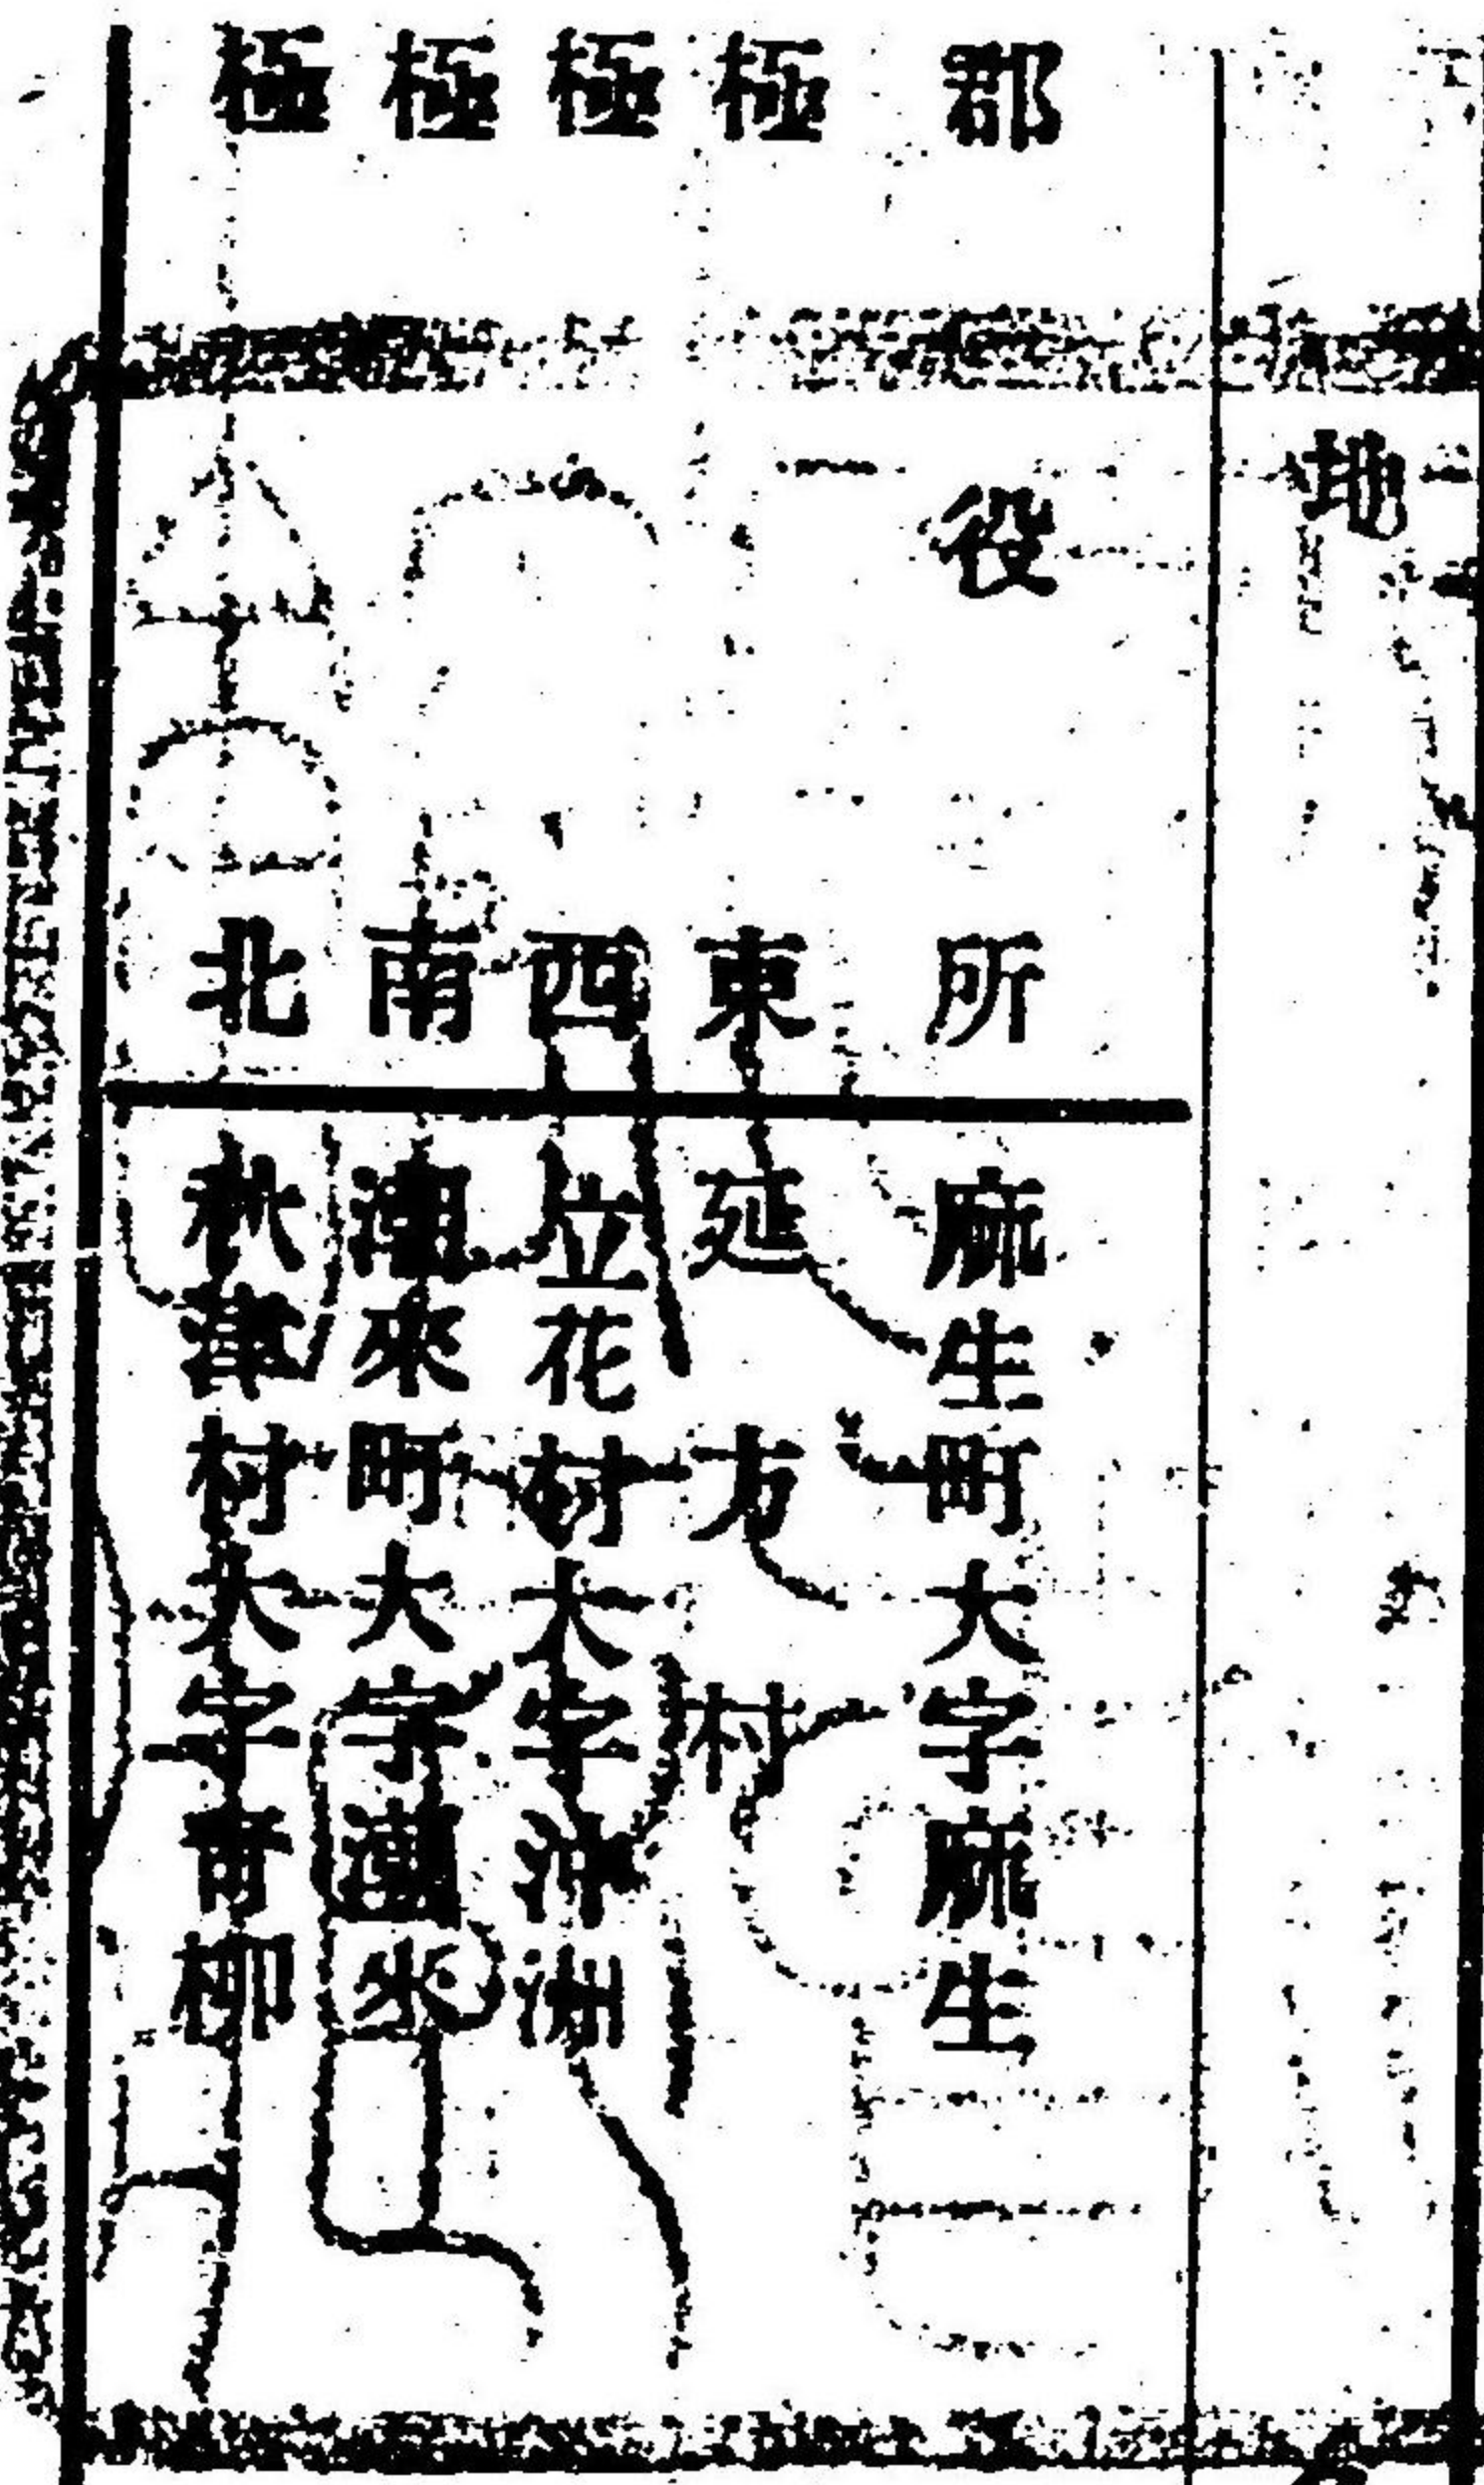 地
郡役所 麻生町大字麻生
極東 延方村
極西 立花村大字沖洲
極南 潮來町大字潮來
極北 秋津村大字青柳